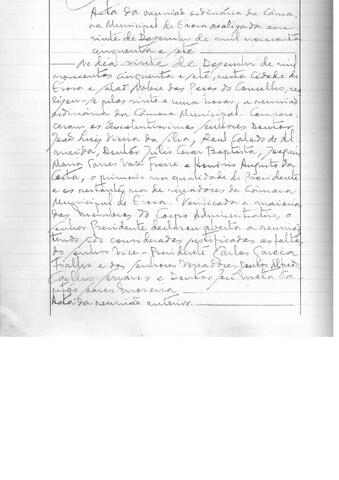 Acta da reunião ordinária da Câma-
ra Municipal de Évora realizada em
vinte de Dezembro de mil novecentos
cinquenta e sete
No dia vinte de Dezembro de mil
novecentos cinquenta e sete, nesta Cidade de
Évora e Sala Nobre dos Paços do Concelho, re
alizou-se pelas vinte e uma horas, a reunião
ordinária da Câmara Municipal. Compare-
ceram os Excelentíssimos senhores Doutor
João Luís Vieira da Silva, René Calado de Al
meida, Doutor Júlio Cesar Baptista, Joaquim
Maria Torres Vaz Freire e Honório Augusto da
Costa, o primeiro na qualidade de Presidente
e os restantes na de vereadores da Câmara
Municipal de Évora. Verificada a maioria
dos membros do Corpo Administrativo, o
senhor Presidente declarou aberta a reunião
tendo sido consideradas justificadas as faltas
do senhor Vice-Presidente Carlos Garcia
Fialho e dos senhores Vereadores, Doutor Alfredo
Coelho e Doutor José
Soares
Acta da reunião anterior